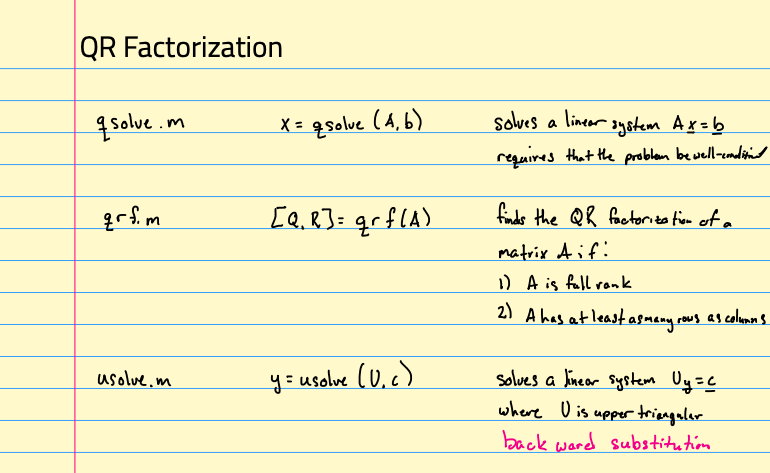 QR Factorization
qsolve.m x = qsolve (A, b) solves a linear system Ax = b
requires that the problem be well-condition
qrf.m [Q, R] = qrf(A) finds the QR factorization of a
matrix A if:
1) A is full rank
2) A has at least as many rows as columns
usolve.m y = usolve (U, c) solves a linear system Uy = c
where U is upper triangular
backward substitution